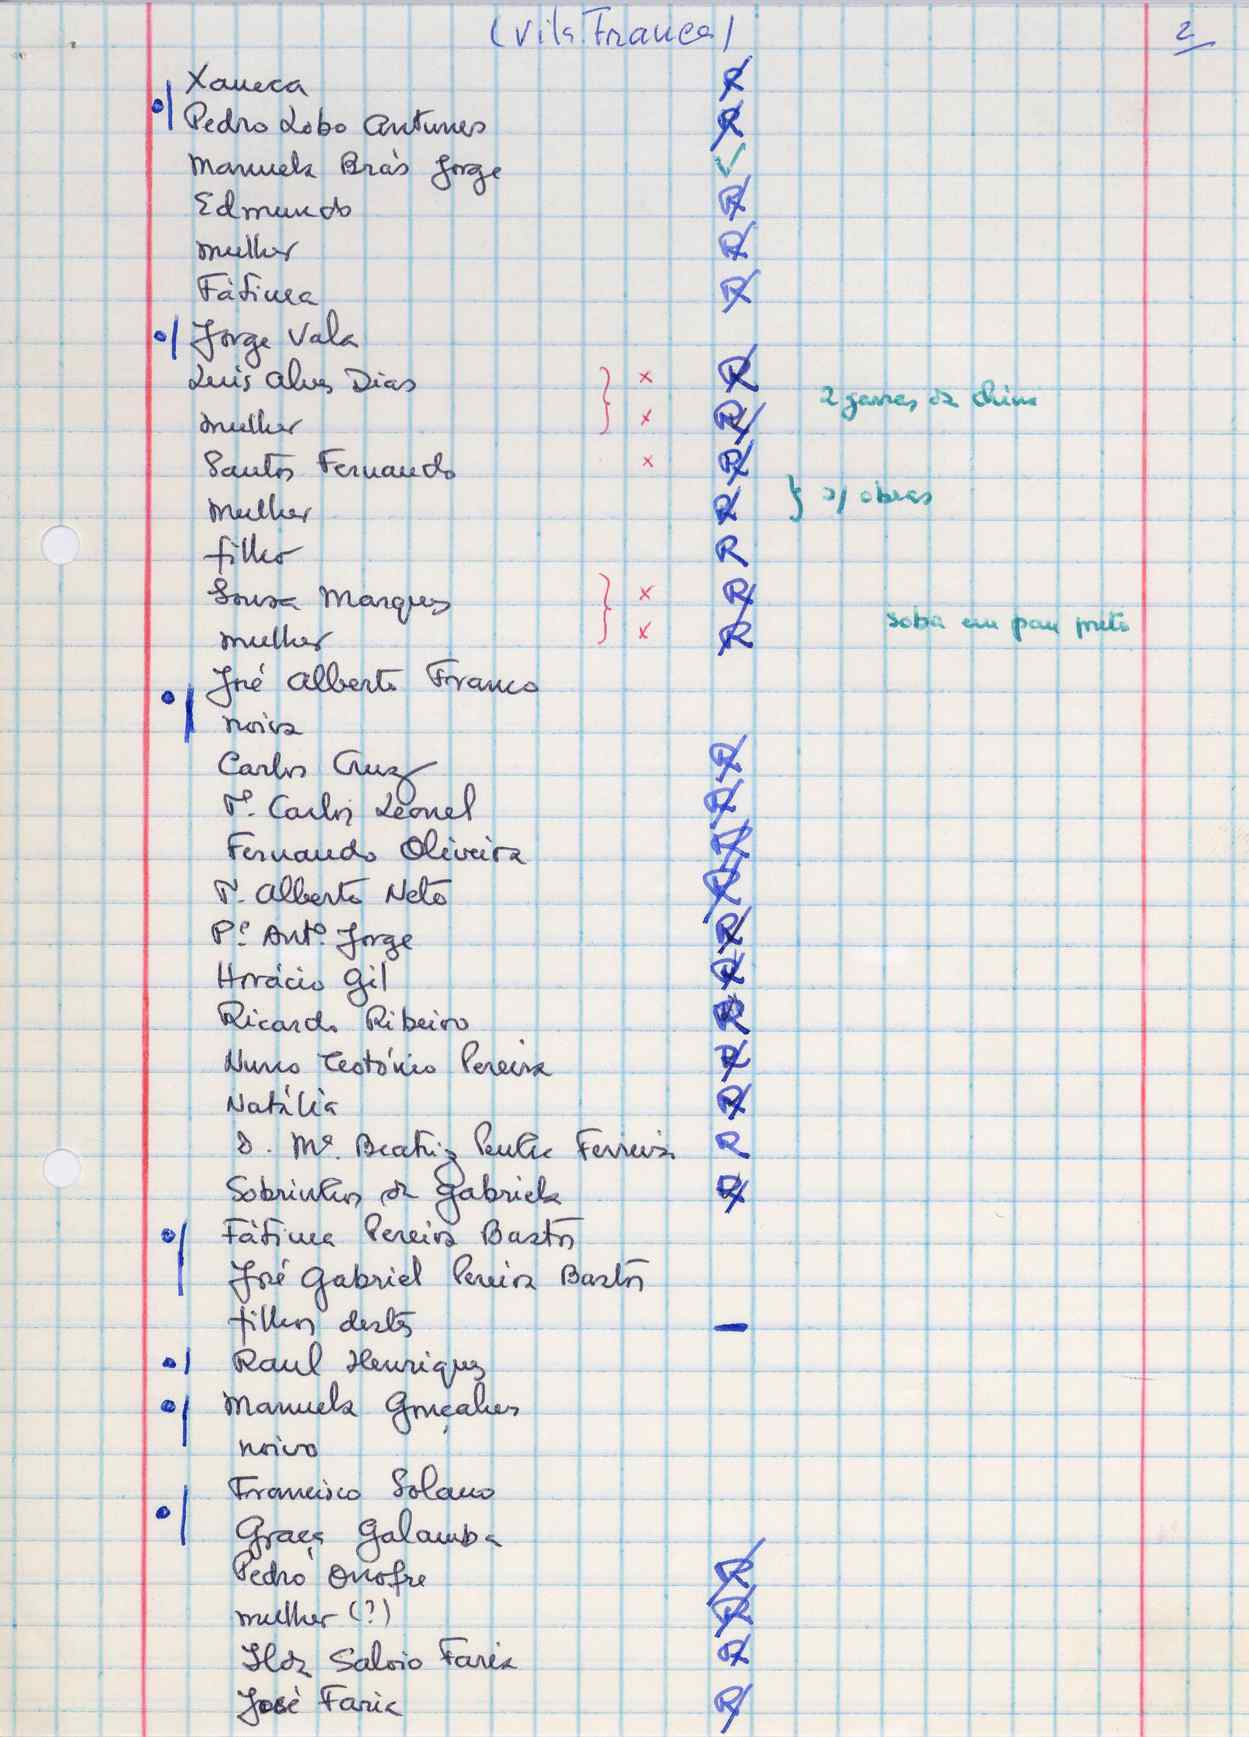 (Vila Franca) 2
Xaneca R
Pedro Lobo Antunes R
Manuela Brás Jorge ✓
Edmundo R
mulher R
Fátima R
Jorge Vala
Luis Alves Dias } x R 2 jarras da China
mulher x R
Santos Fernando x R
mulher R } s/ obras
filho R
Sousa Marques } x R
mulher x R soba em pau preto
José Alberto Franco
noiva
Carlos Cruz R
Pe. Carlos Leonel R
Fernando Oliveira R
P. Alberto Neto R
Pe. Antº. Jorge R
Horácio Gil R
Ricardo Ribeiro R
Nuno Teotónio Pereira R
Natália R
D. Mª. Beatriz Ferreira R
Sobrinhos da Gabriela R
Fátima Pereira Bastos
José Gabriel Pereira Bastos
filhos destes —
Raul Henriques
Manuela Gonçalves
noivo
Francisco Solano
Graça Galamba
Pedro Onofre R
mulher (?) R
Ilda Salvio Faria R
José Faria R